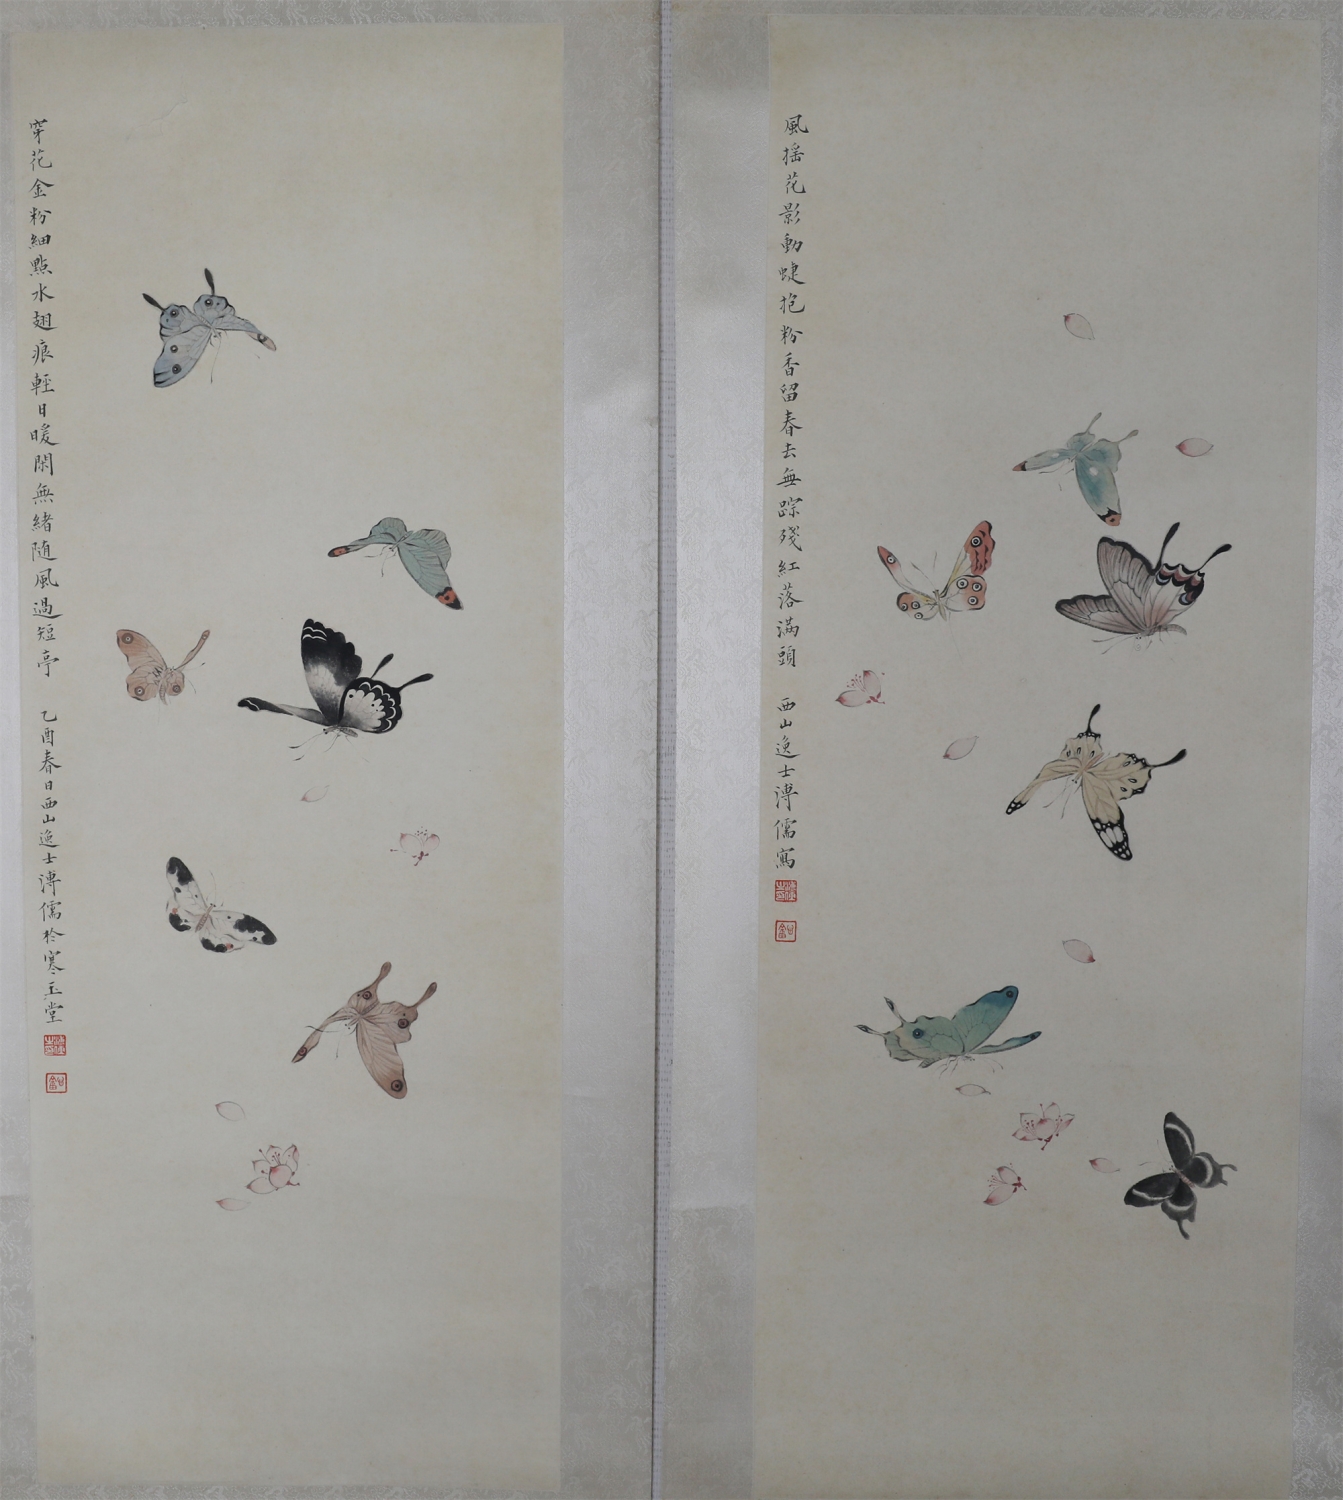 風搖花影動蜨抱粉香留春去無踪殘紅落滿頭
西山逸士溥儒寫
穿花金粉細點水翅痕輕日暖閑無緒隨風過短亭
乙酉春日西山逸士溥儒於寒玉堂